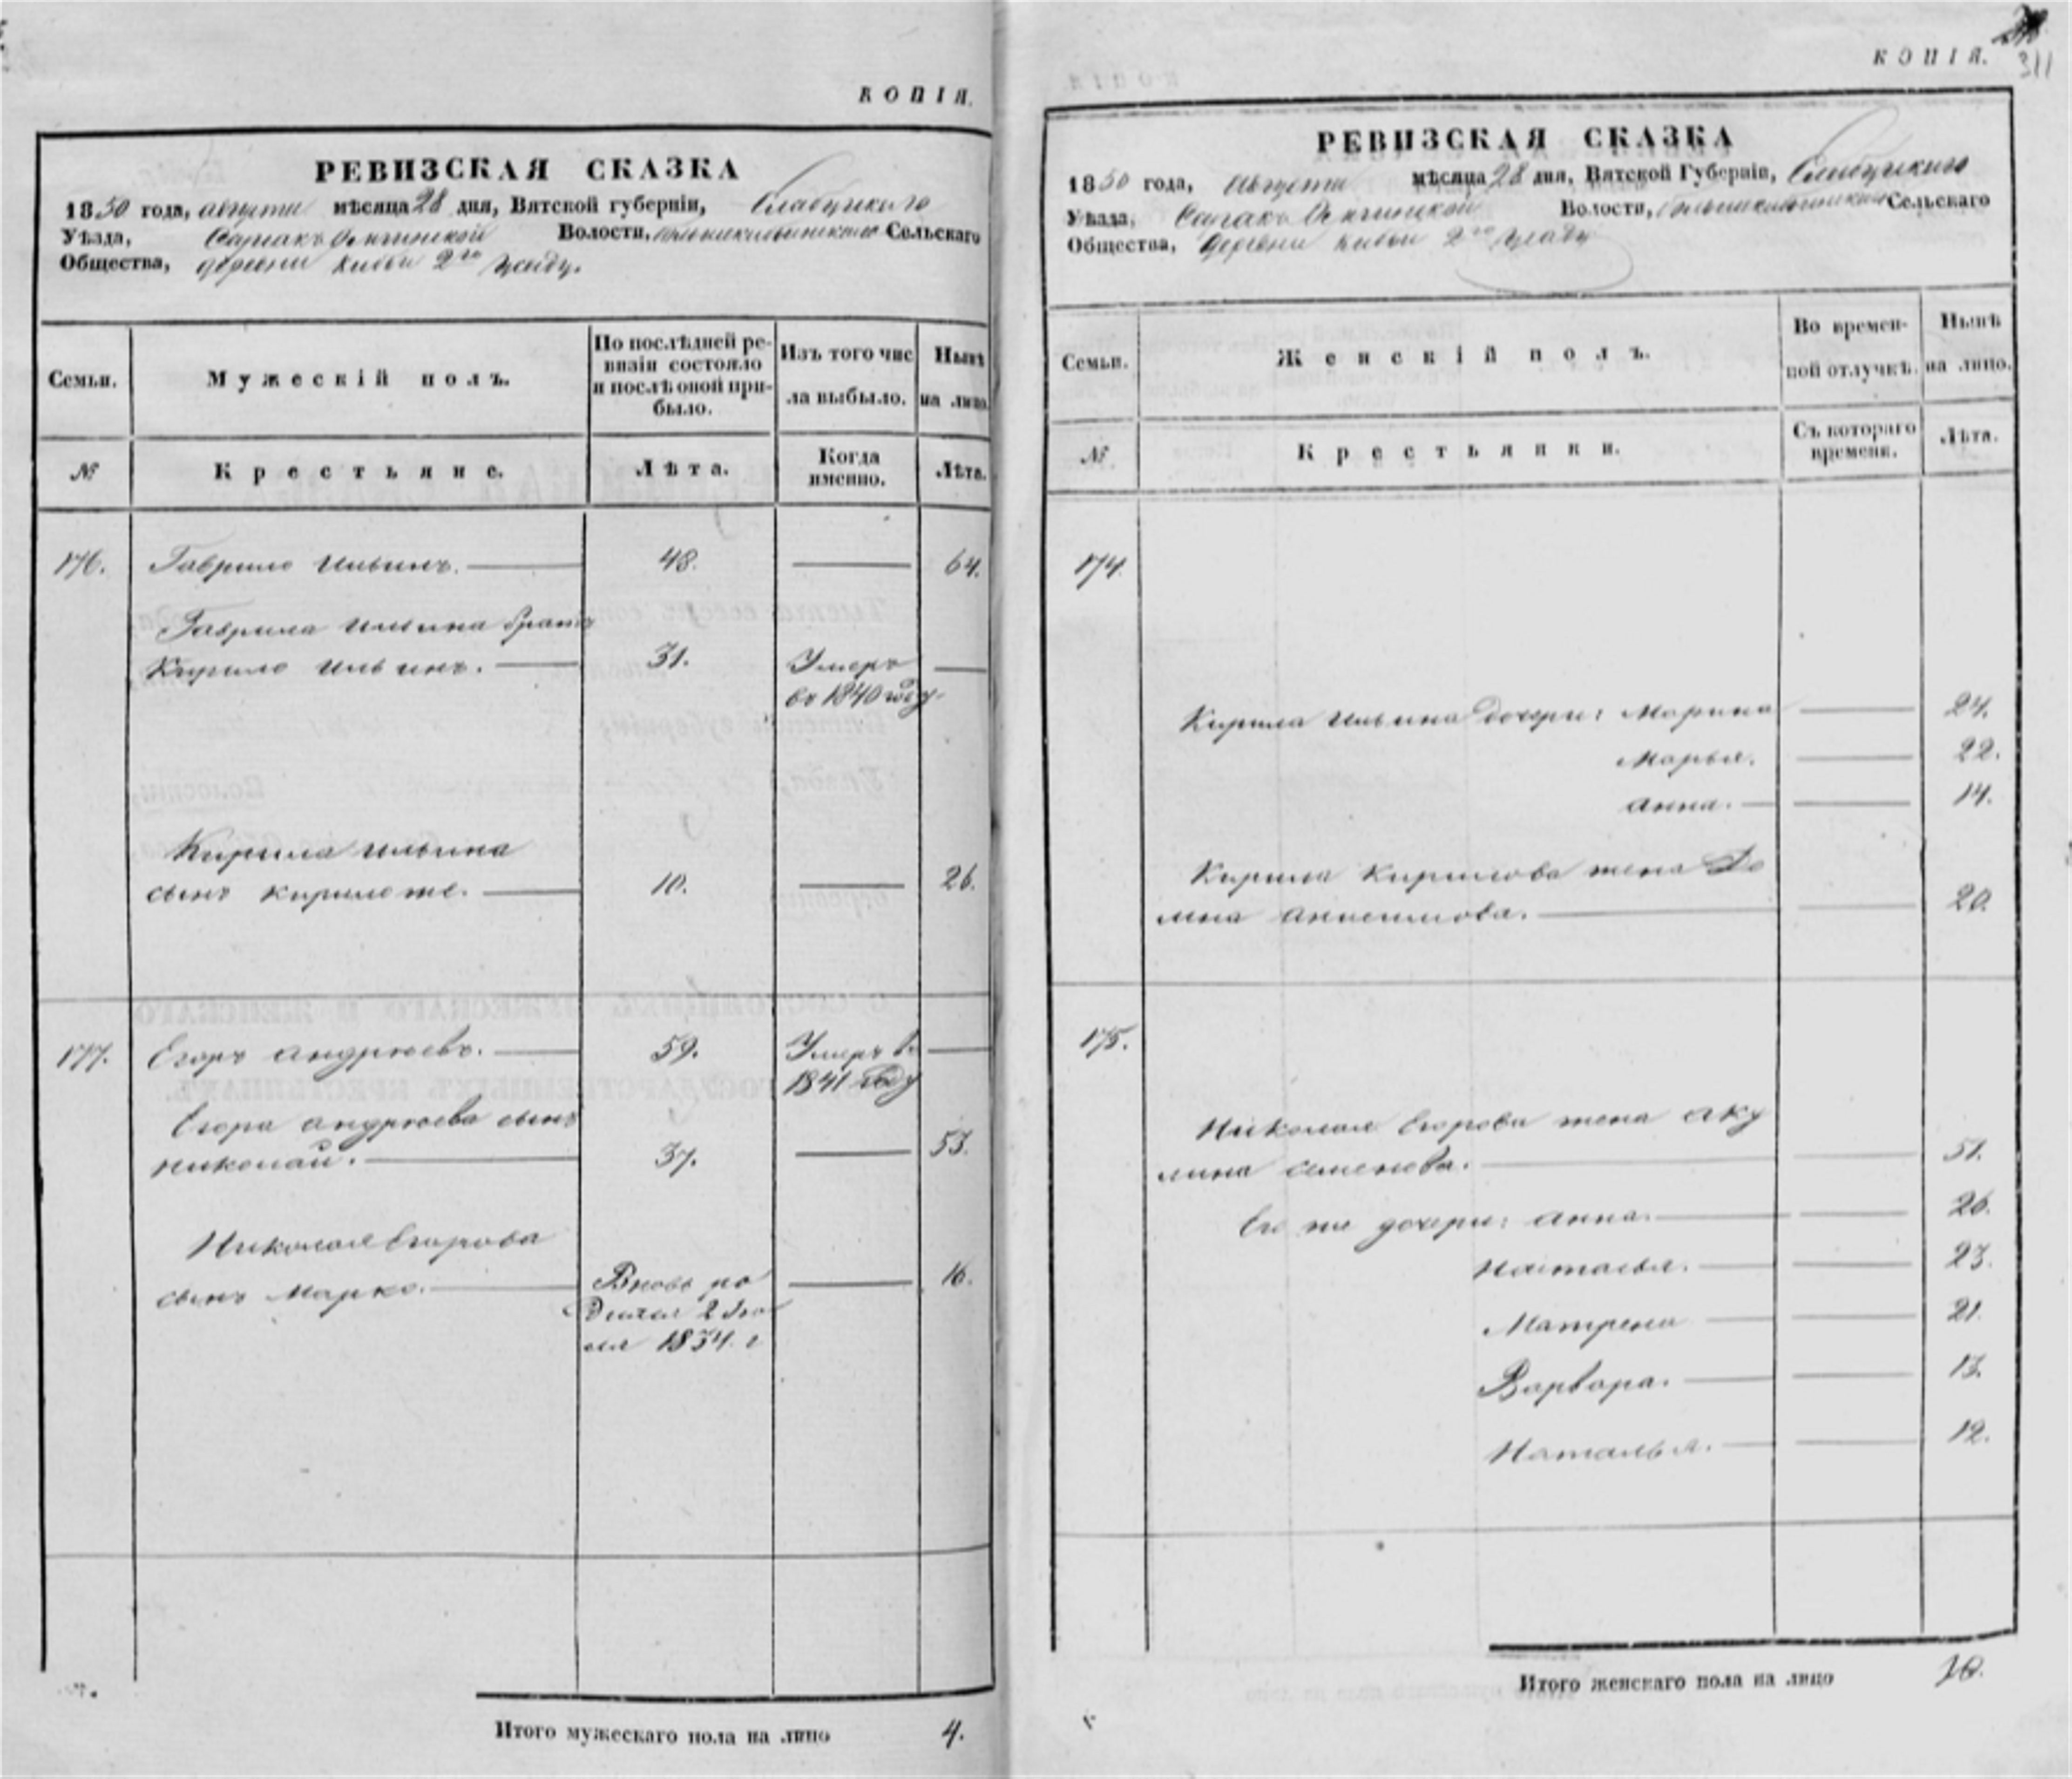 КОПІЯ.
РЕВИЗСКАЯ СКАЗКА
1850 года, августа мѣсяца 28 дня, Вятской губерніи, Елабужскаго
Уѣзда, Волости, Сельскаго
Общества, деревни 2го
Семьи.
Мужескій полъ.
По послѣдней ре-
визіи состояло
и послѣ оной при-
было.
Изъ того чис
ла выбыло.
Нынѣ
на лицо.
№
Крестьяне.
Лѣта.
Когда
именно.
Лѣта.
176. Гаврило Ильинъ. 48. 64.
Гаврила Ильина братъ
Кирило Ильинъ. 31. Умеръ
въ 1840 году
Кирила Ильина
сынъ Кирило же. 10. 26.
177. Егоръ Андрѣевъ. 59. Умеръ въ
1841 году
Егора Андрѣева сынъ
Николай. 37. 53.
Николая Егорова
сынъ Марко. Вновь ро 16.
дился 2 Iю
ля 1834. г
Итого мужескаго пола на лицо 4.
КОПІЯ.
311
РЕВИЗСКАЯ СКАЗКА
1850 года, Августа мѣсяца 28 дня, Вятской Губерніи, Елабужскаго
Уѣзда, Волости, Сельскаго
Общества, деревни 2го
Семьи.
Женскій полъ.
Во времен-
ной отлучкѣ.
Нынѣ
на лицо.
№
Крестьянки.
Съ котораго
времени.
Лѣта.
174.
Кирила Ильина дочери: Марина 24.
Марья. 22.
Анна. 14.
Кирила Кирилова жена До
мна Анисимова. 20.
175.
Николая Егорова жена Аку
лина Семенова. 51.
Его же дочери: Анна. 26.
Наталья. 23.
Матрена 21.
Варвара. 13.
Наталья. 12.
Итого женскаго пола на лицо 10.